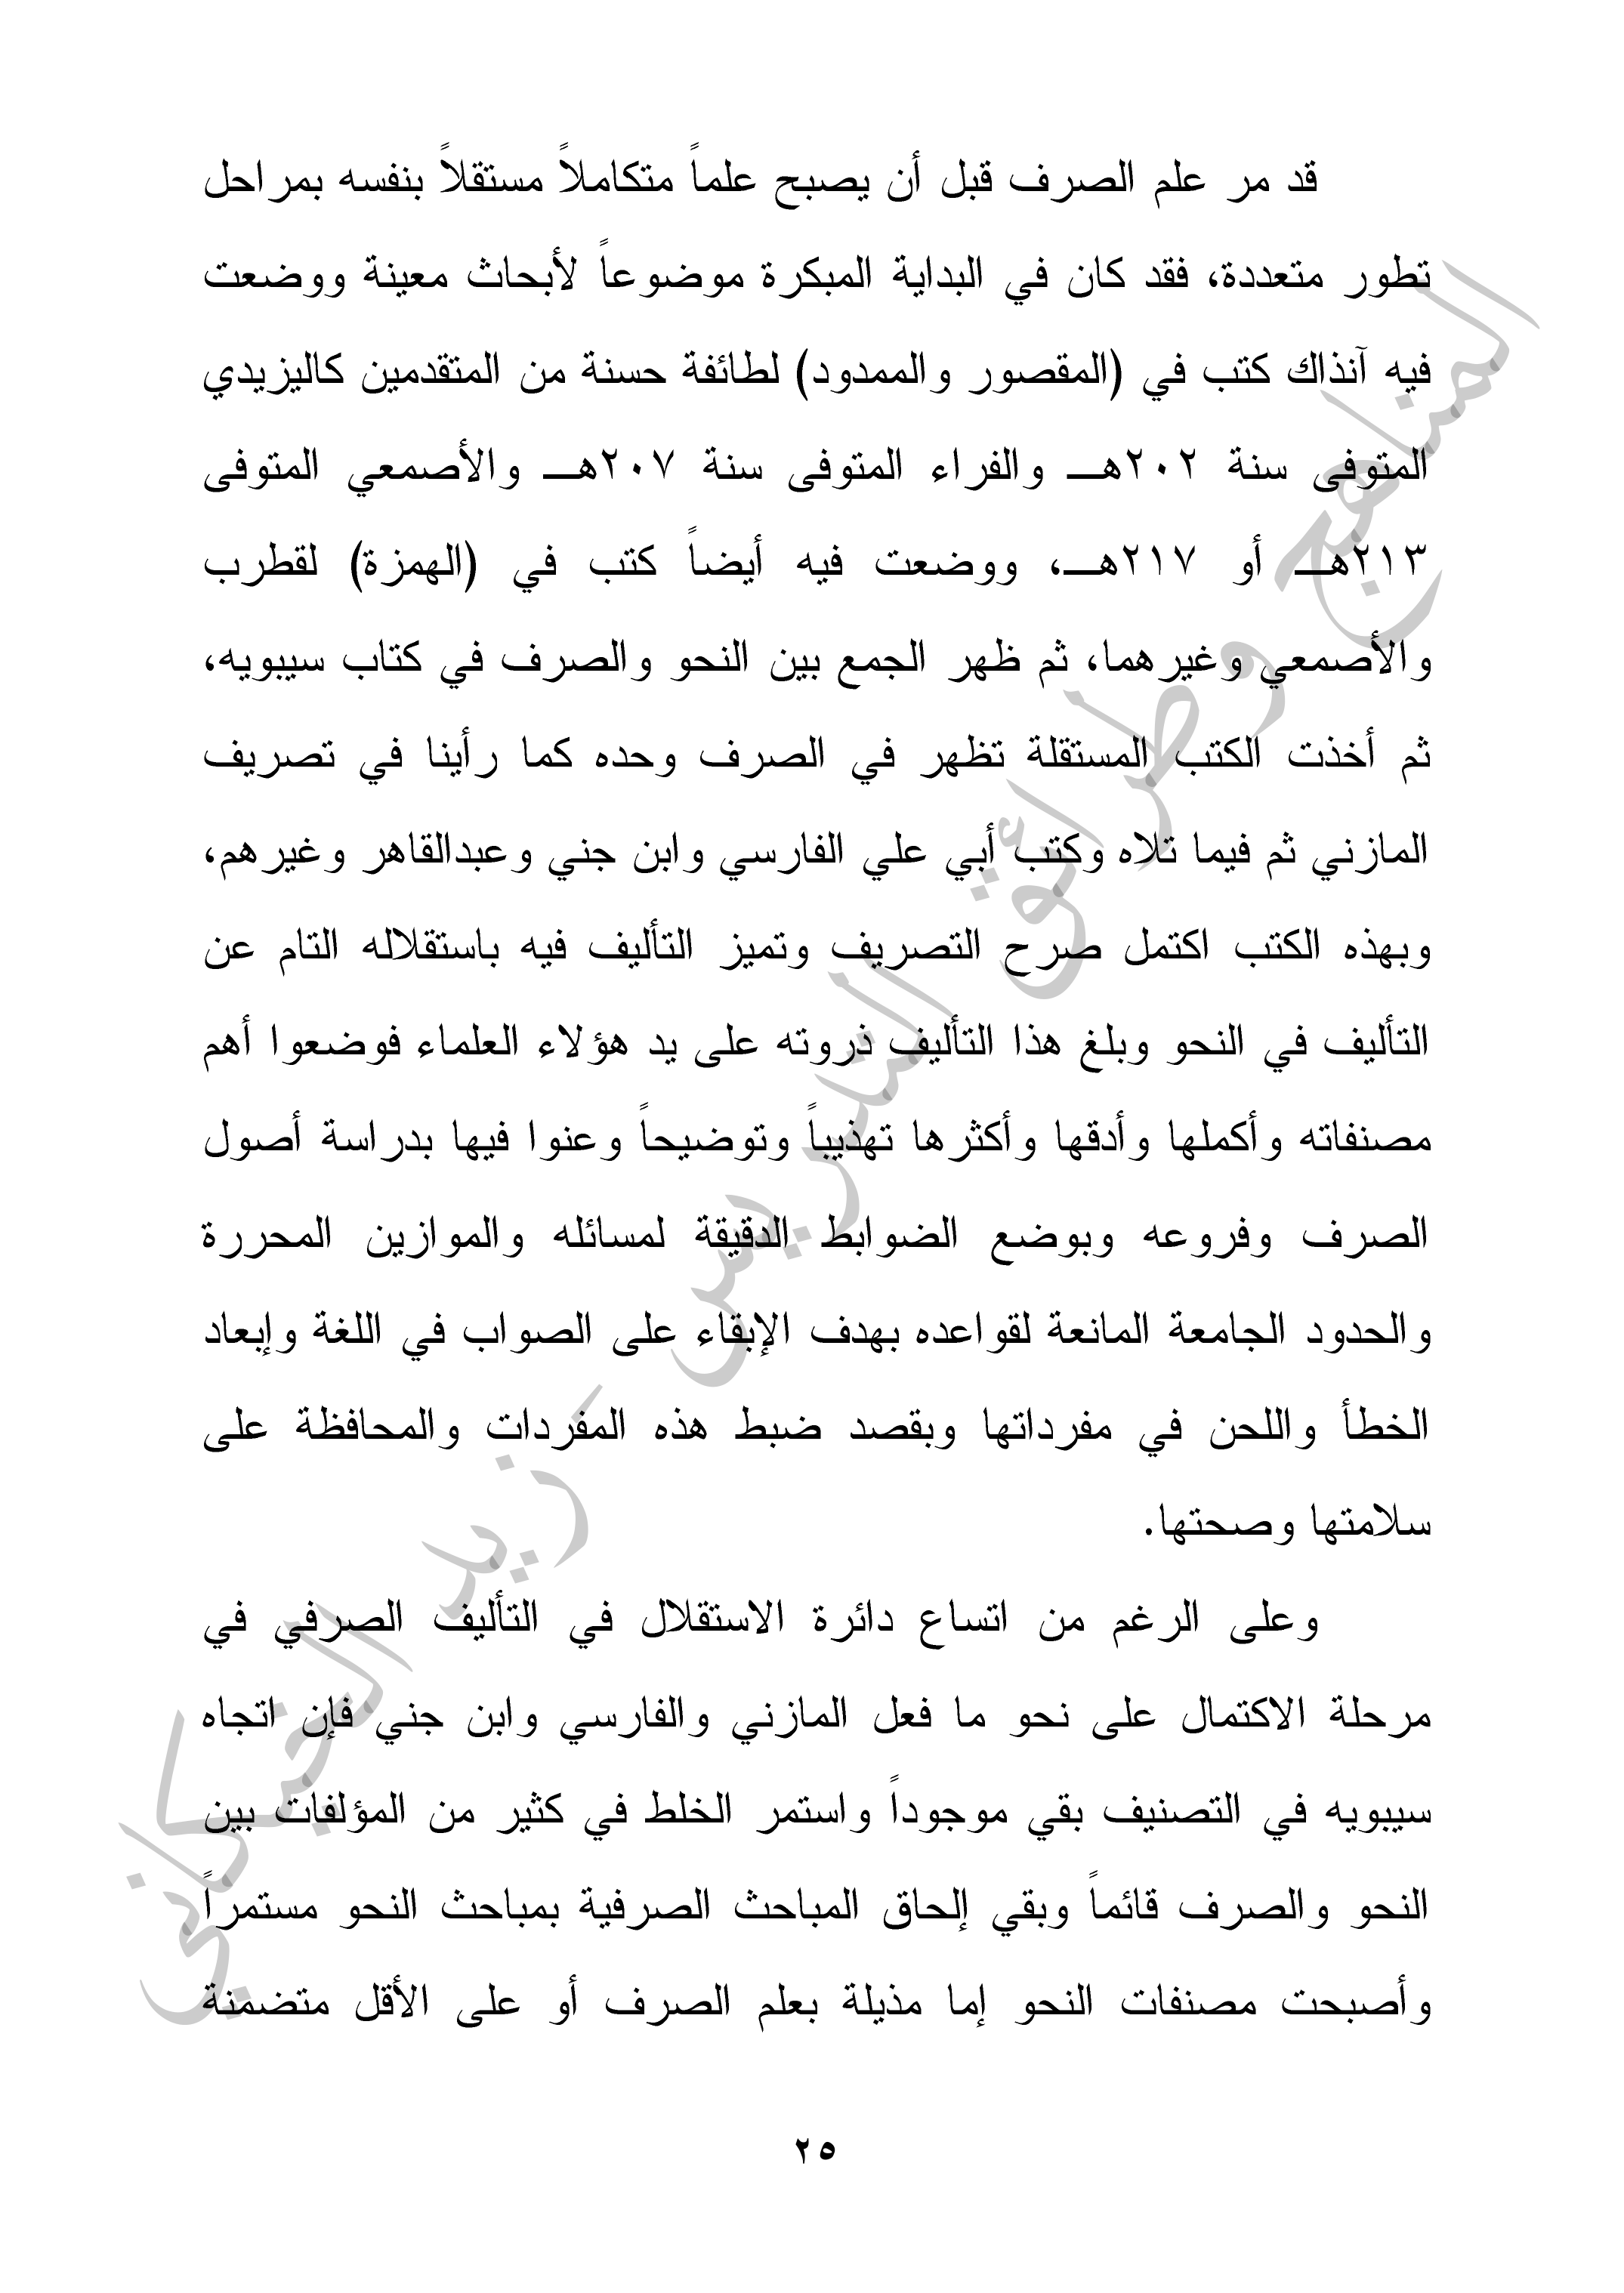 قد مر علم الصرف قبل أن يصبح علماً متكاملاً مستقلاً بنفسه بمراحل
تطور متعددة، فقد كان في البداية المبكرة موضوعاً لأبحاث معينة ووضعت
فيه آنذاك كتب في (المقصور والممدود) لطائفة حسنة من المتقدمين كاليزيدي
المتوفى سنة ٢٠٢هـــ والفراء المتوفى سنة ٢٠٧هـــ والأصمعي المتوفى
٢١٣هـــ أو ٢١٧هـــ، ووضعت فيه أيضاً كتب في (الهمزة) لقطرب
والأصمعي وغيرهما، ثم ظهر الجمع بين النحو والصرف في كتاب سيبويه،
ثم أخذت الكتب المستقلة تظهر في الصرف وحده كما رأينا في تصريف
المازني ثم فيما تلاه وكتب أبي علي الفارسي وابن جني وعبدالقاهر وغيرهم،
وبهذه الكتب اكتمل صرح التصريف وتميز التأليف فيه باستقلاله التام عن
التأليف في النحو وبلغ هذا التأليف ذروته على يد هؤلاء العلماء فوضعوا أهم
مصنفاته وأكملها وأدقها وأكثرها تهذيباً وتوضيحاً وعنوا فيها بدراسة أصول
الصرف وفروعه وبوضع الضوابط الدقيقة لمسائله والموازين المحررة
والحدود الجامعة المانعة لقواعده بهدف الإبقاء على الصواب في اللغة وإبعاد
الخطأ واللحن في مفرداتها وبقصد ضبط هذه المفردات والمحافظة على
سلامتها وصحتها.
وعلى الرغم من اتساع دائرة الاستقلال في التأليف الصرفي في
مرحلة الاكتمال على نحو ما فعل المازني والفارسي وابن جني فإن اتجاه
سيبويه في التصنيف بقي موجوداً واستمر الخلط في كثير من المؤلفات بين
النحو والصرف قائماً وبقي إلحاق المباحث الصرفية بمباحث النحو مستمراً
وأصبحت مصنفات النحو إما مذيلة بعلم الصرف أو على الأقل متضمنة
٢٥
المناهج وطرائق التدريس - زيد الخيكاني